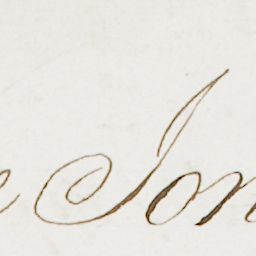 e Jon